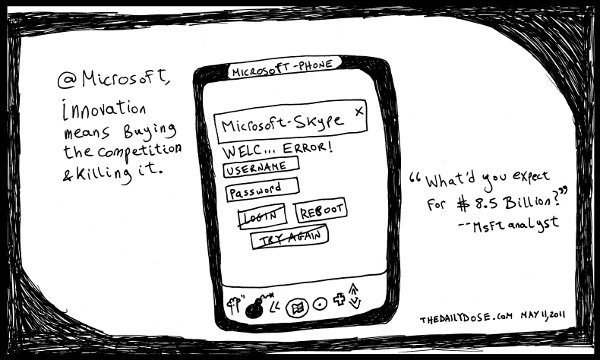 @Microsoft,
innovation
means Buying
the competition
& Killing it.
MICROSOFT-PHONE
Microsoft-Skype x
WELC... ERROR!
USERNAME
Password
LOGIN REBOOT
TRY AGAIN
"What'd you expect
For $ 8.5 Billion?"
--Msft analyst
THEDAILYDOSE.COM MAY 11, 2011